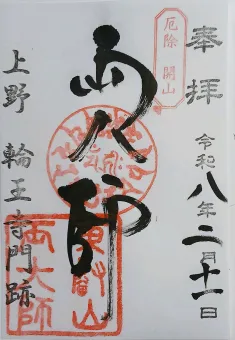 奉拝
令和八年二月十一日
厄除 開山
両大師
上野 輪王寺門跡
両大師